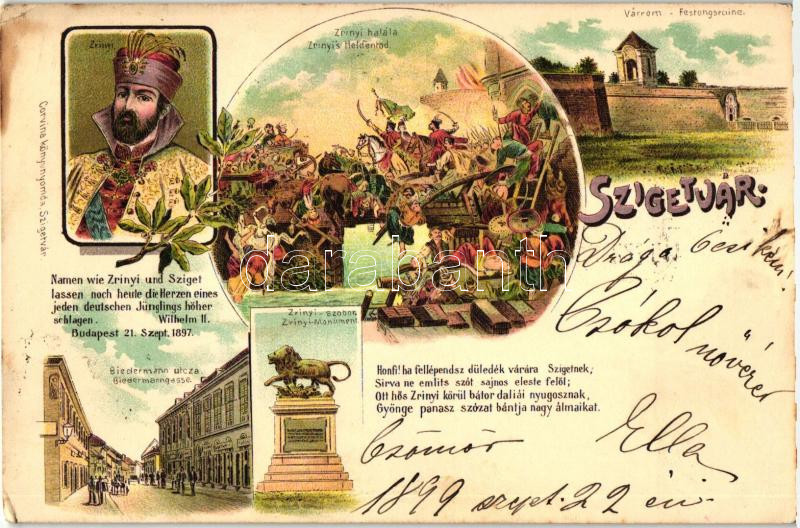 Zrinyi.
Zrinyi halála
Zrinyi's Heldentod.
Várrom - Festungsruine.
Corvina könyvnyomda, Szigetvár.
SZIGETVÁR.
Namen wie Zrinyi und Sziget
lassen noch heute die Herzen eines
jeden deutschen Jünglings höher
schlagen. Wilhelm II.
Budapest 21. Szept. 1897.
Zrinyi - Szobor.
Zrinyi-Monument.
Biedermann utcza.
Biedermanngasse.
Honfi! ha fellépendsz düledék várára Szigetnek,
Sirva ne emlits szót sajnos eleste felől;
Ott hős Zrinyi körül bátor daliái nyugosznak,
Gyönge panasz szózat bántja nagy álmaikat.
Drága
Csókol nővéred
Ella
Csömör
1899 szept. 22 én.
darabanth